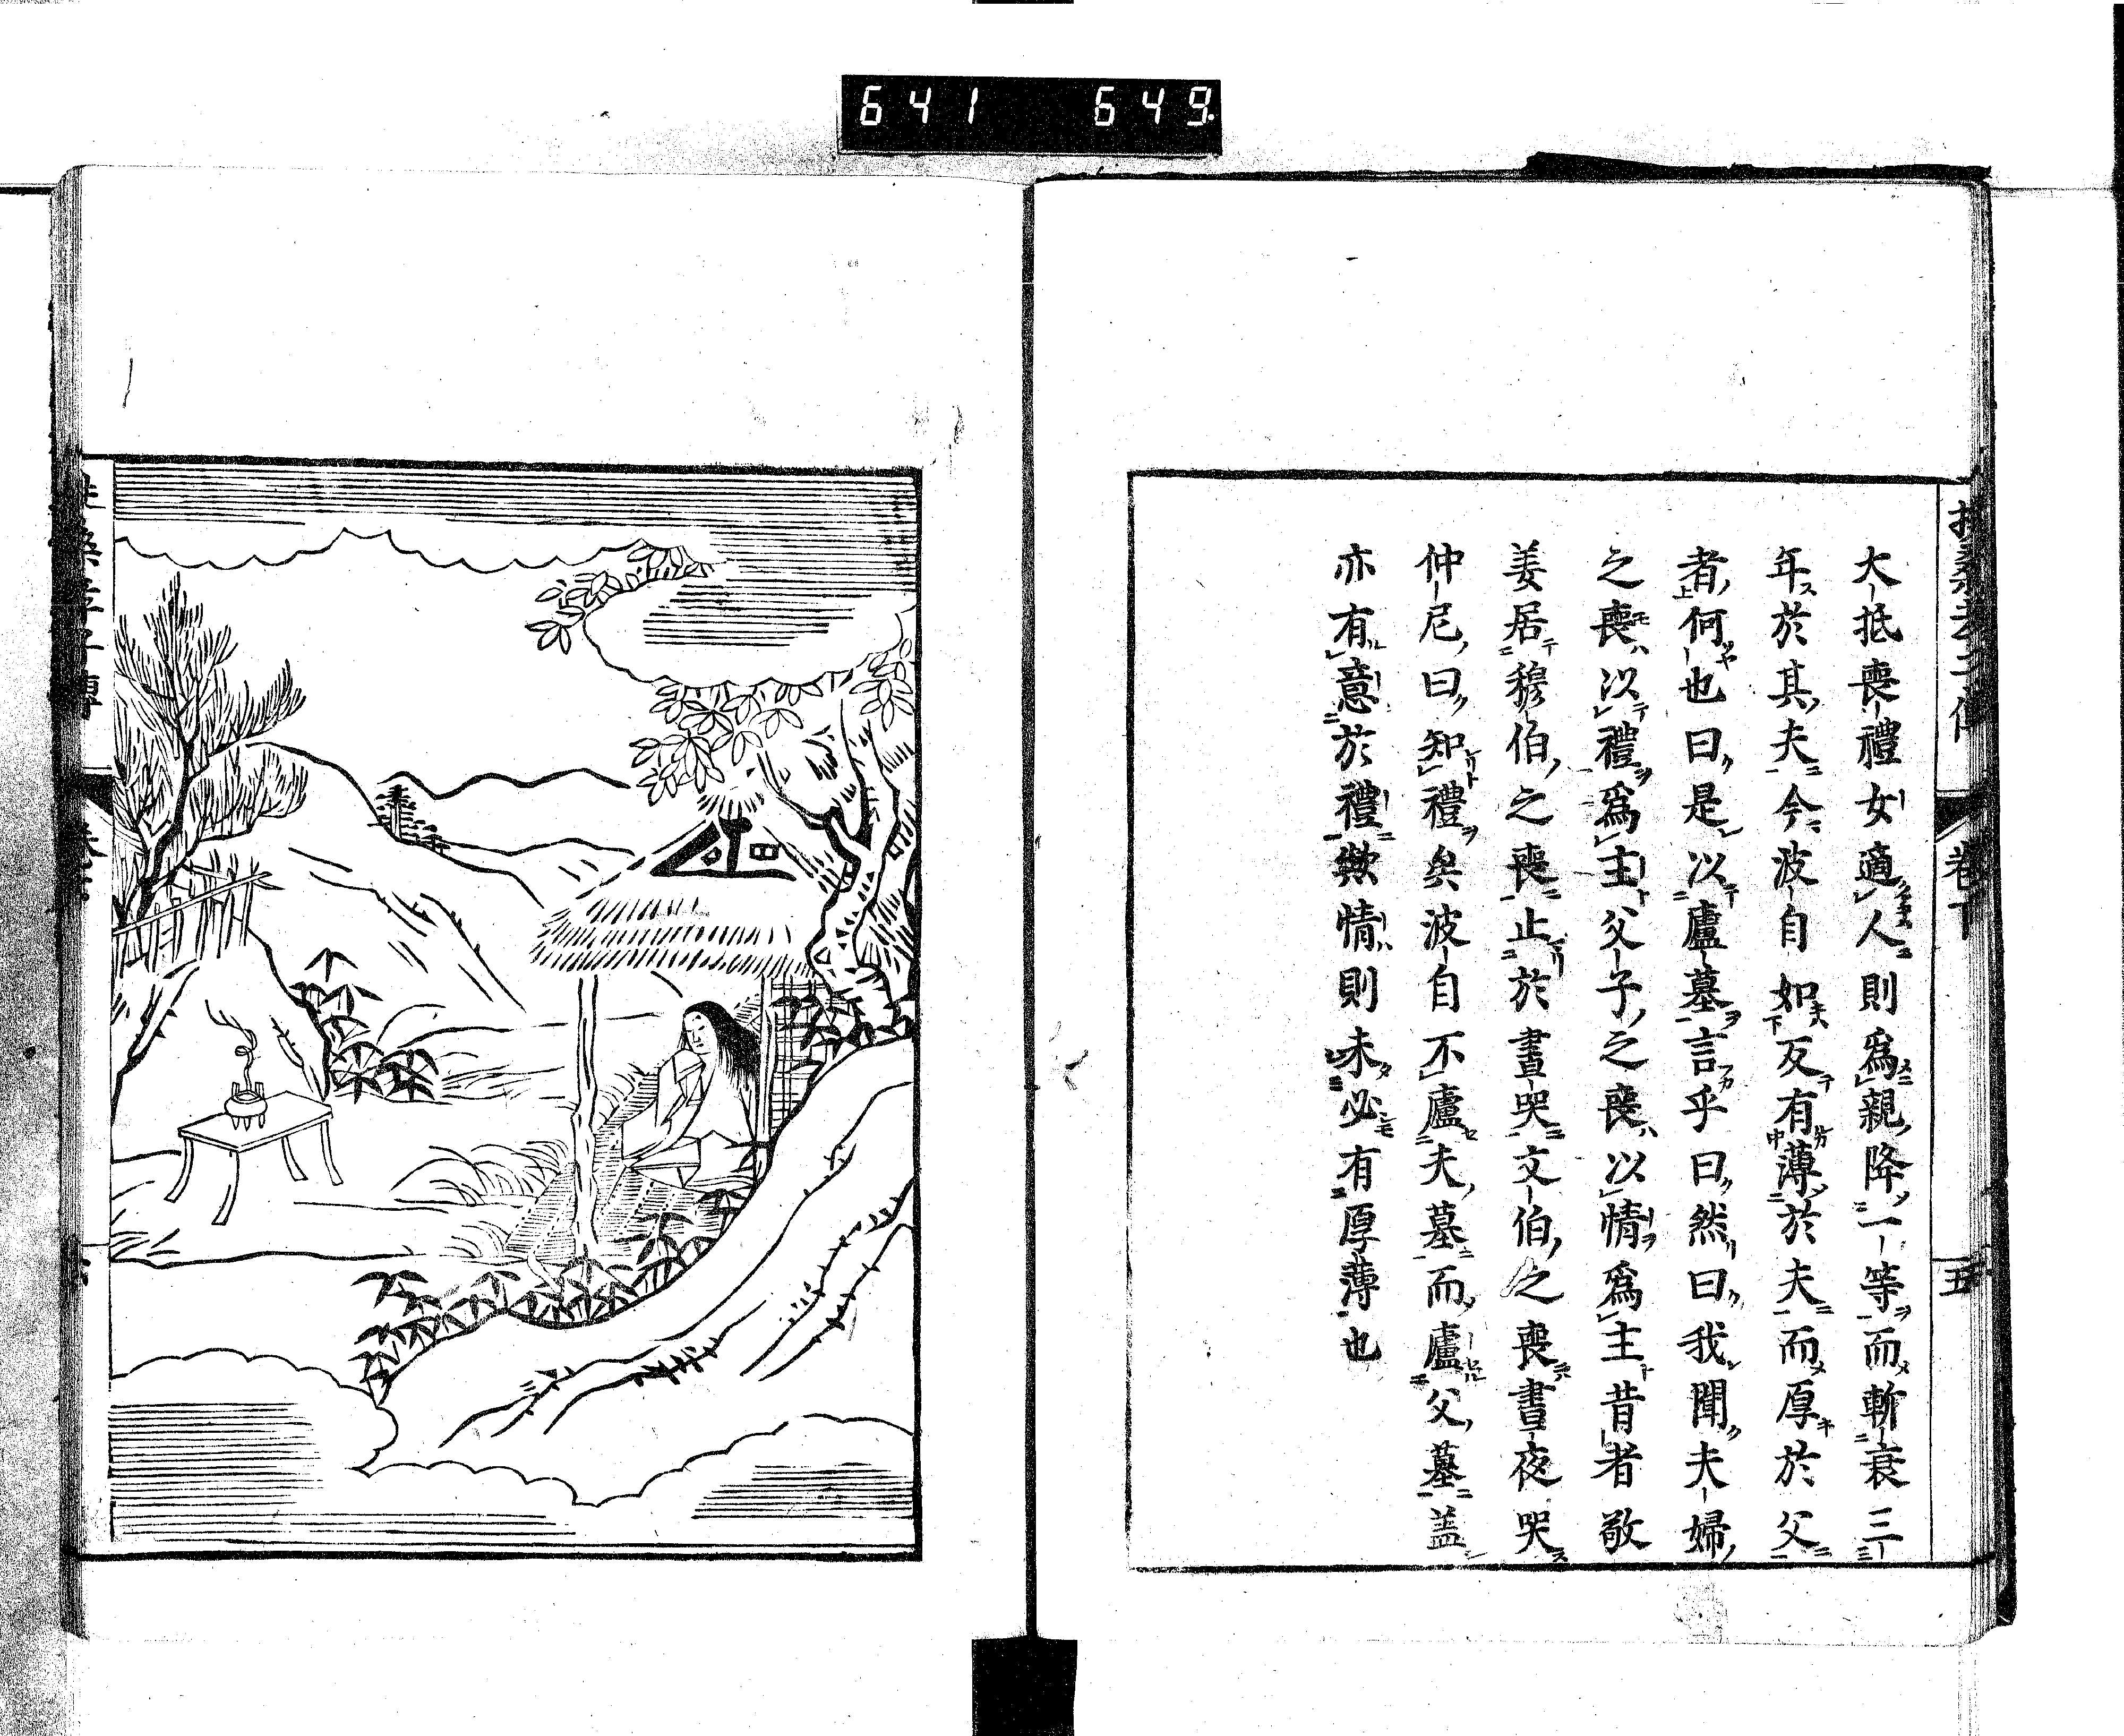 641 649
大抵喪禮女適人則爲親降一等而斬衰三
年於其夫今波自如反有薄於夫而厚於父
者何也曰是以廬墓言乎曰然曰我聞夫婦
之喪以禮爲主父子之喪以情爲主昔者敬
姜居穆伯之喪止於晝哭文伯之喪晝夜哭
仲尼曰知禮矣波自不廬夫墓而廬父墓蓋
亦有意於禮歟情則未必有厚薄也
卷下
五